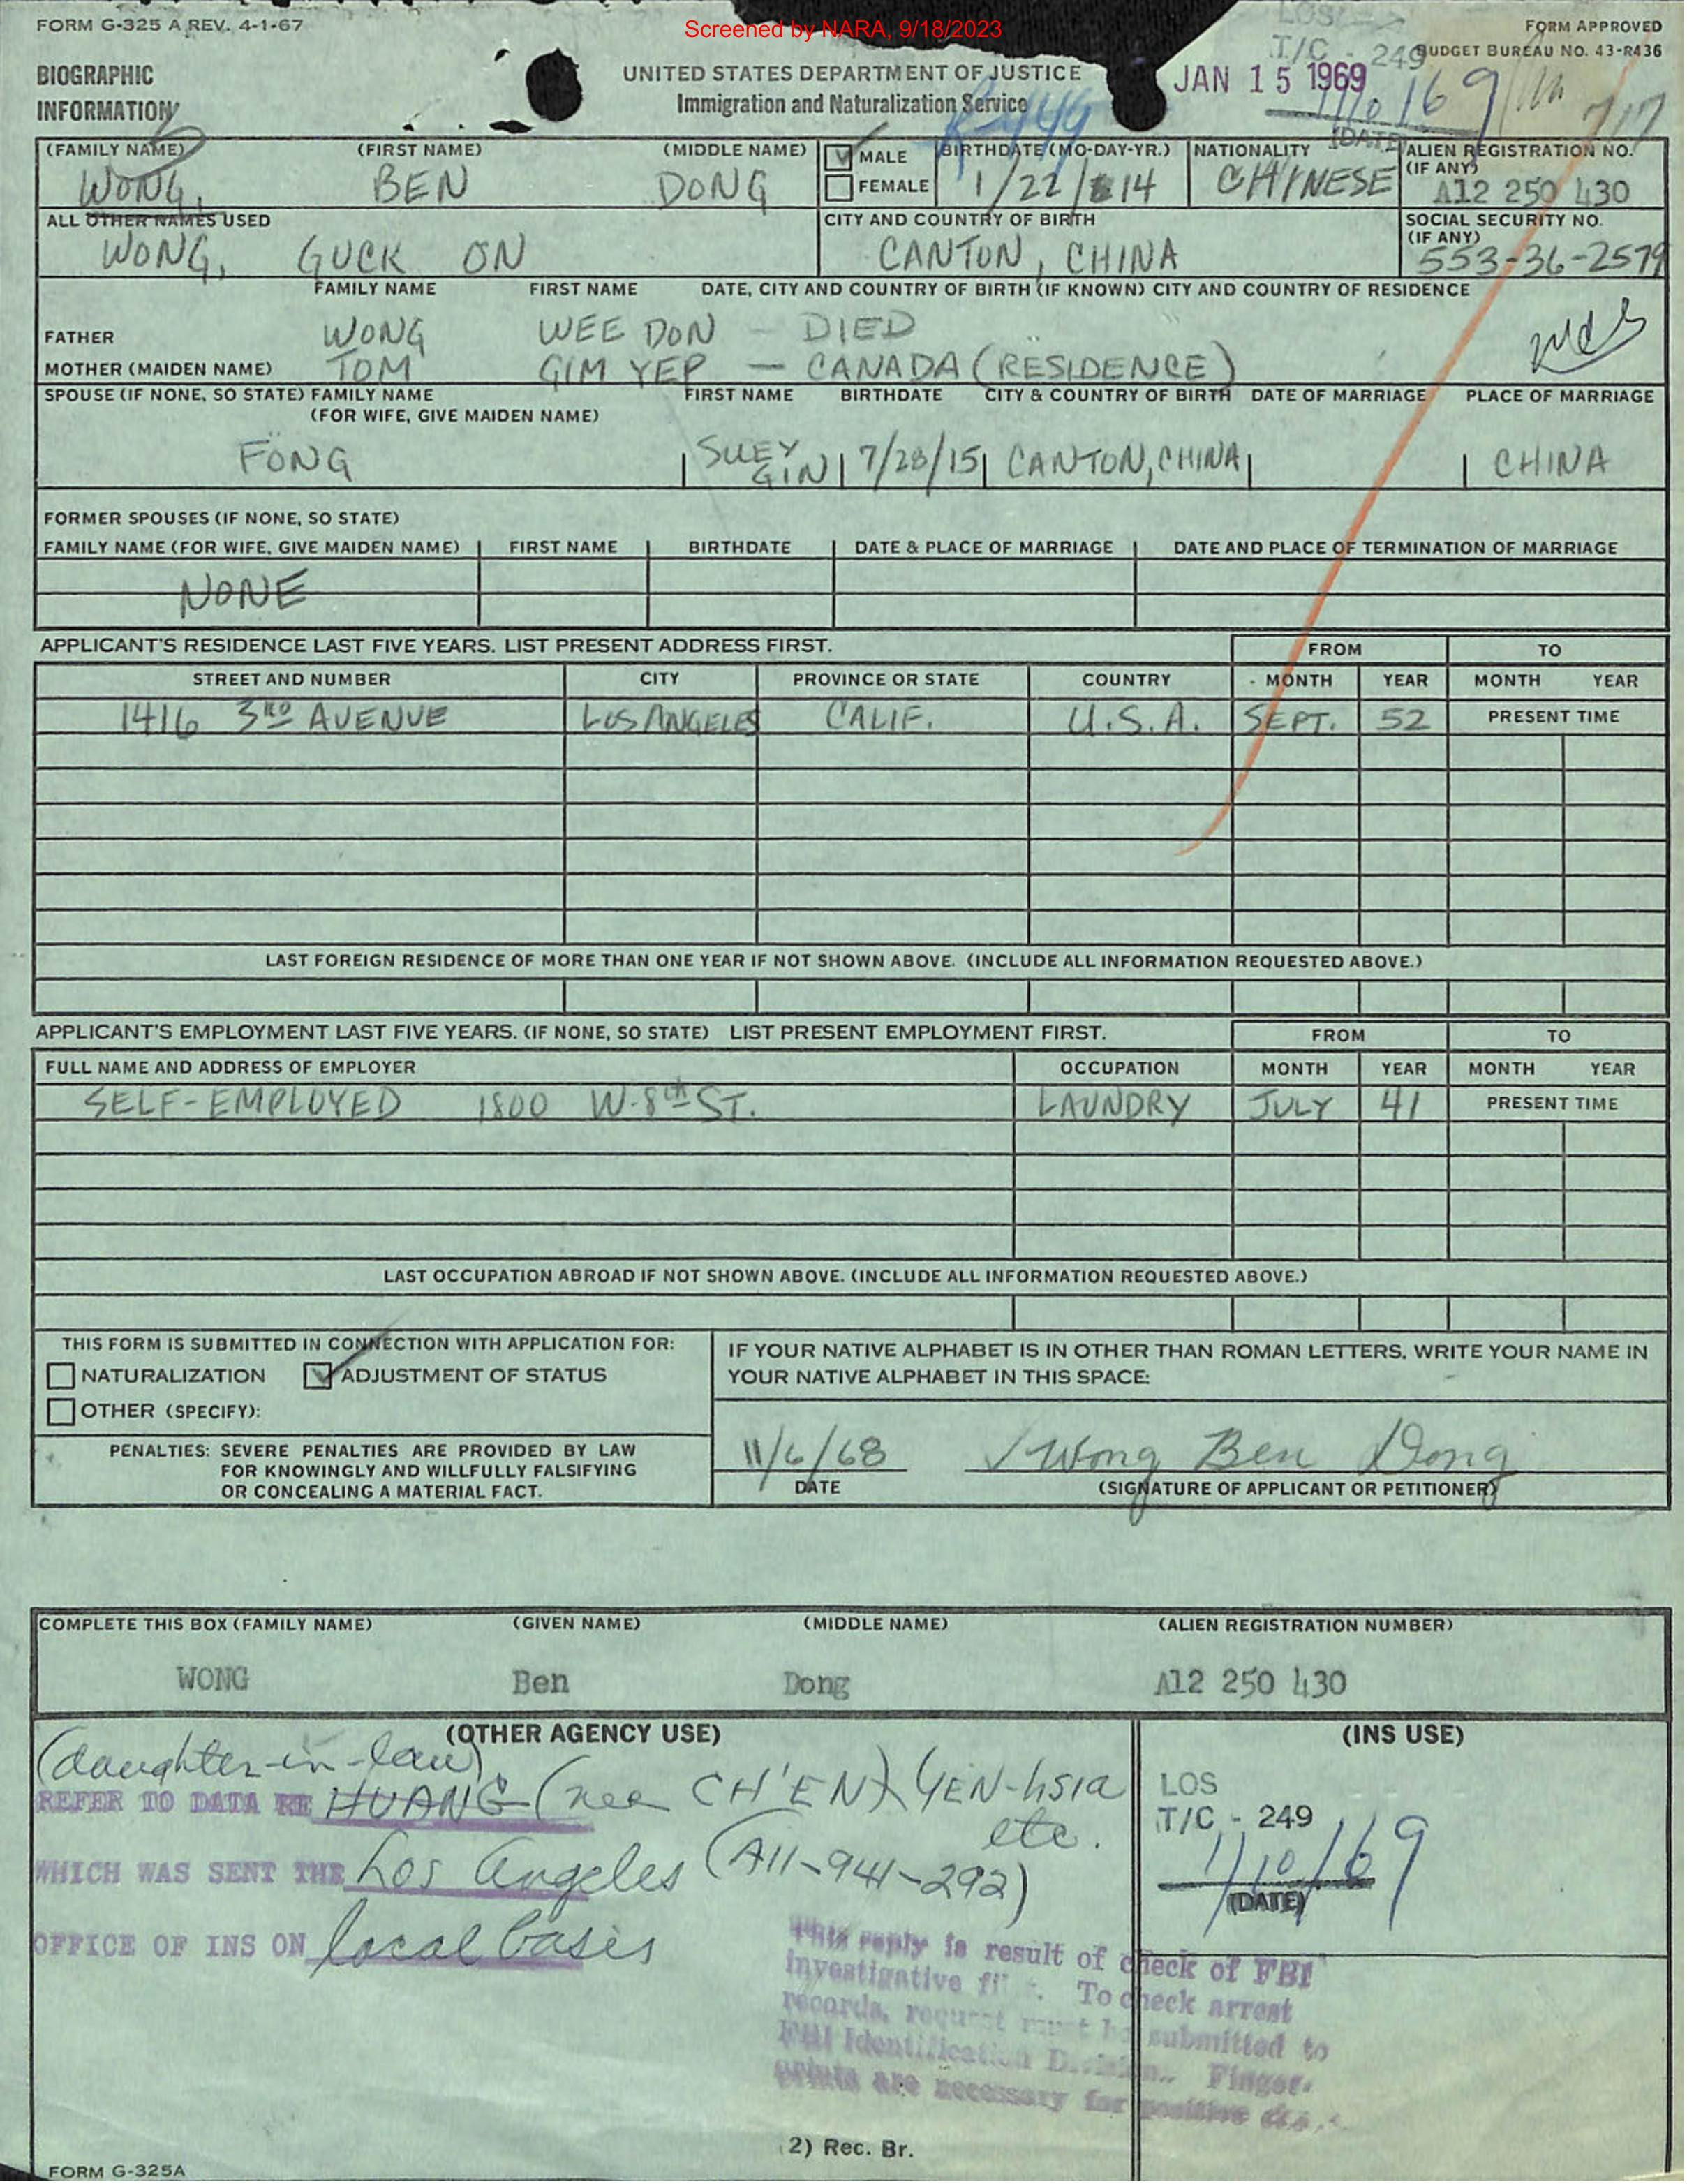 Screened by NARA, 9/18/2023
FORM G-325 A REV. 4-1-67
FORM APPROVED
BUDGET BUREAU NO. 43-R436
LOS
T/C - 249
JAN 15 1969
(DATE)
717
BIOGRAPHIC
INFORMATION
UNITED STATES DEPARTMENT OF JUSTICE
Immigration and Naturalization Service
(FAMILY NAME) (FIRST NAME) (MIDDLE NAME) MALE BIRTHDATE (MO-DAY-YR.) NATIONALITY ALIEN REGISTRATION NO.
(IF ANY)
WONG, BEN DONG FEMALE 1/22/14 CHINESE A12 250 430
ALL OTHER NAMES USED CITY AND COUNTRY OF BIRTH SOCIAL SECURITY NO.
(IF ANY)
WONG, GUCK ON CANTON, CHINA 553-36-2579
FAMILY NAME FIRST NAME DATE, CITY AND COUNTRY OF BIRTH (IF KNOWN) CITY AND COUNTRY OF RESIDENCE
FATHER WONG WEE DON - DIED
MOTHER (MAIDEN NAME) TOM GIM YEP - CANADA (RESIDENCE)
SPOUSE (IF NONE, SO STATE) FAMILY NAME FIRST NAME BIRTHDATE CITY & COUNTRY OF BIRTH DATE OF MARRIAGE PLACE OF MARRIAGE
(FOR WIFE, GIVE MAIDEN NAME)
FONG SUEY GIN 7/28/15 CANTON, CHINA CHINA
FORMER SPOUSES (IF NONE, SO STATE)
FAMILY NAME (FOR WIFE, GIVE MAIDEN NAME) FIRST NAME BIRTHDATE DATE & PLACE OF MARRIAGE DATE AND PLACE OF TERMINATION OF MARRIAGE
NONE
APPLICANT'S RESIDENCE LAST FIVE YEARS. LIST PRESENT ADDRESS FIRST. FROM TO
STREET AND NUMBER CITY PROVINCE OR STATE COUNTRY MONTH YEAR MONTH YEAR
1416 3RD AVENUE LOS ANGELES CALIF. U.S.A. SEPT. 52 PRESENT TIME
LAST FOREIGN RESIDENCE OF MORE THAN ONE YEAR IF NOT SHOWN ABOVE. (INCLUDE ALL INFORMATION REQUESTED ABOVE.)
APPLICANT'S EMPLOYMENT LAST FIVE YEARS. (IF NONE, SO STATE) LIST PRESENT EMPLOYMENT FIRST. FROM TO
FULL NAME AND ADDRESS OF EMPLOYER OCCUPATION MONTH YEAR MONTH YEAR
SELF-EMPLOYED 1800 W. 8th ST. LAUNDRY JULY 41 PRESENT TIME
LAST OCCUPATION ABROAD IF NOT SHOWN ABOVE. (INCLUDE ALL INFORMATION REQUESTED ABOVE.)
THIS FORM IS SUBMITTED IN CONNECTION WITH APPLICATION FOR:
NATURALIZATION ADJUSTMENT OF STATUS
OTHER (SPECIFY):
IF YOUR NATIVE ALPHABET IS IN OTHER THAN ROMAN LETTERS, WRITE YOUR NAME IN
YOUR NATIVE ALPHABET IN THIS SPACE:
PENALTIES: SEVERE PENALTIES ARE PROVIDED BY LAW
FOR KNOWINGLY AND WILLFULLY FALSIFYING
OR CONCEALING A MATERIAL FACT.
11/6/68 Wong Ben Dong
DATE (SIGNATURE OF APPLICANT OR PETITIONER)
COMPLETE THIS BOX (FAMILY NAME) (GIVEN NAME) (MIDDLE NAME) (ALIEN REGISTRATION NUMBER)
WONG Ben Dong A12 250 430
(OTHER AGENCY USE) (INS USE)
(daughter-in-law)
REFER TO DATA RE HUANG (nee CH'EN) YEN-hsia
etc.
WHICH WAS SENT THE Los Angeles (A11-941-292)
OFFICE OF INS ON local basis
LOS
T/C - 249
1/10/69
(DATE)
This reply is result of check of FBI
investigative To check arrest
records, request must be submitted to
FBI Identification Division. Finger-
prints are necessary for positive
2) Rec. Br.
FORM G-325A